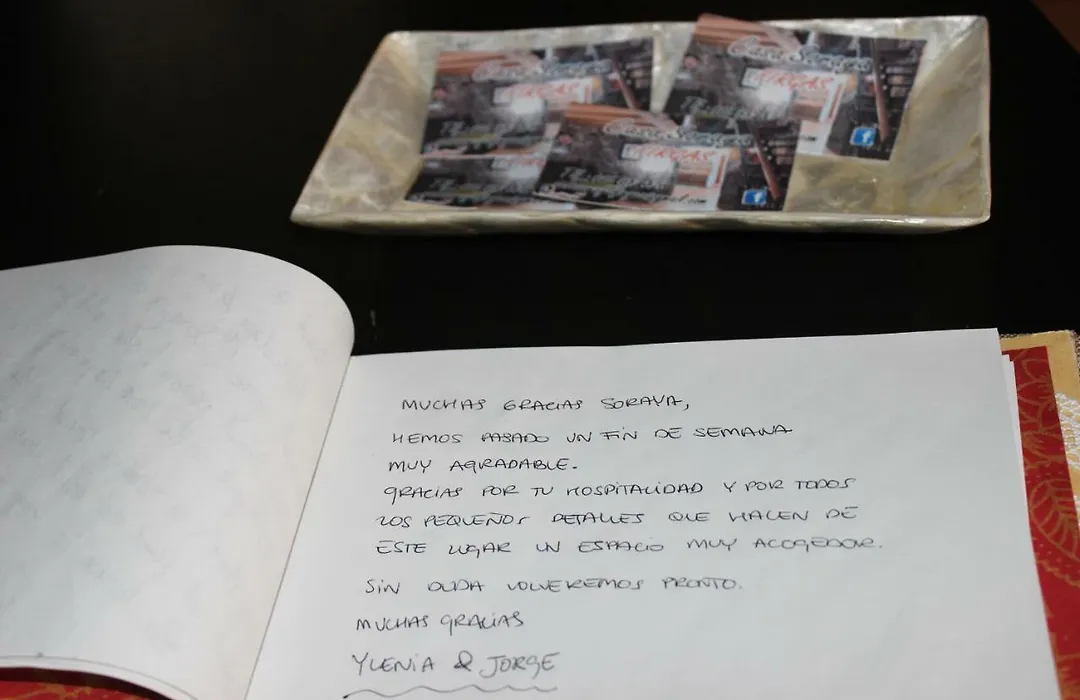 Casa Sergas
VIRGAS
Casa Sergas
VIRGAS
Casa Sergas
VIRGAS
MUCHAS GRACIAS SORAYA,
HEMOS PASADO UN FIN DE SEMANA
MUY AGRADABLE.
GRACIAS POR TU HOSPITALIDAD Y POR TODOS
LOS PEQUEÑOS DETALLES QUE HACEN DE
ESTE LUGAR UN ESPACIO MUY ACOGEDOR.
SIN DUDA VOLVEREMOS PRONTO.
MUCHAS GRACIAS
YLENIA & JORGE